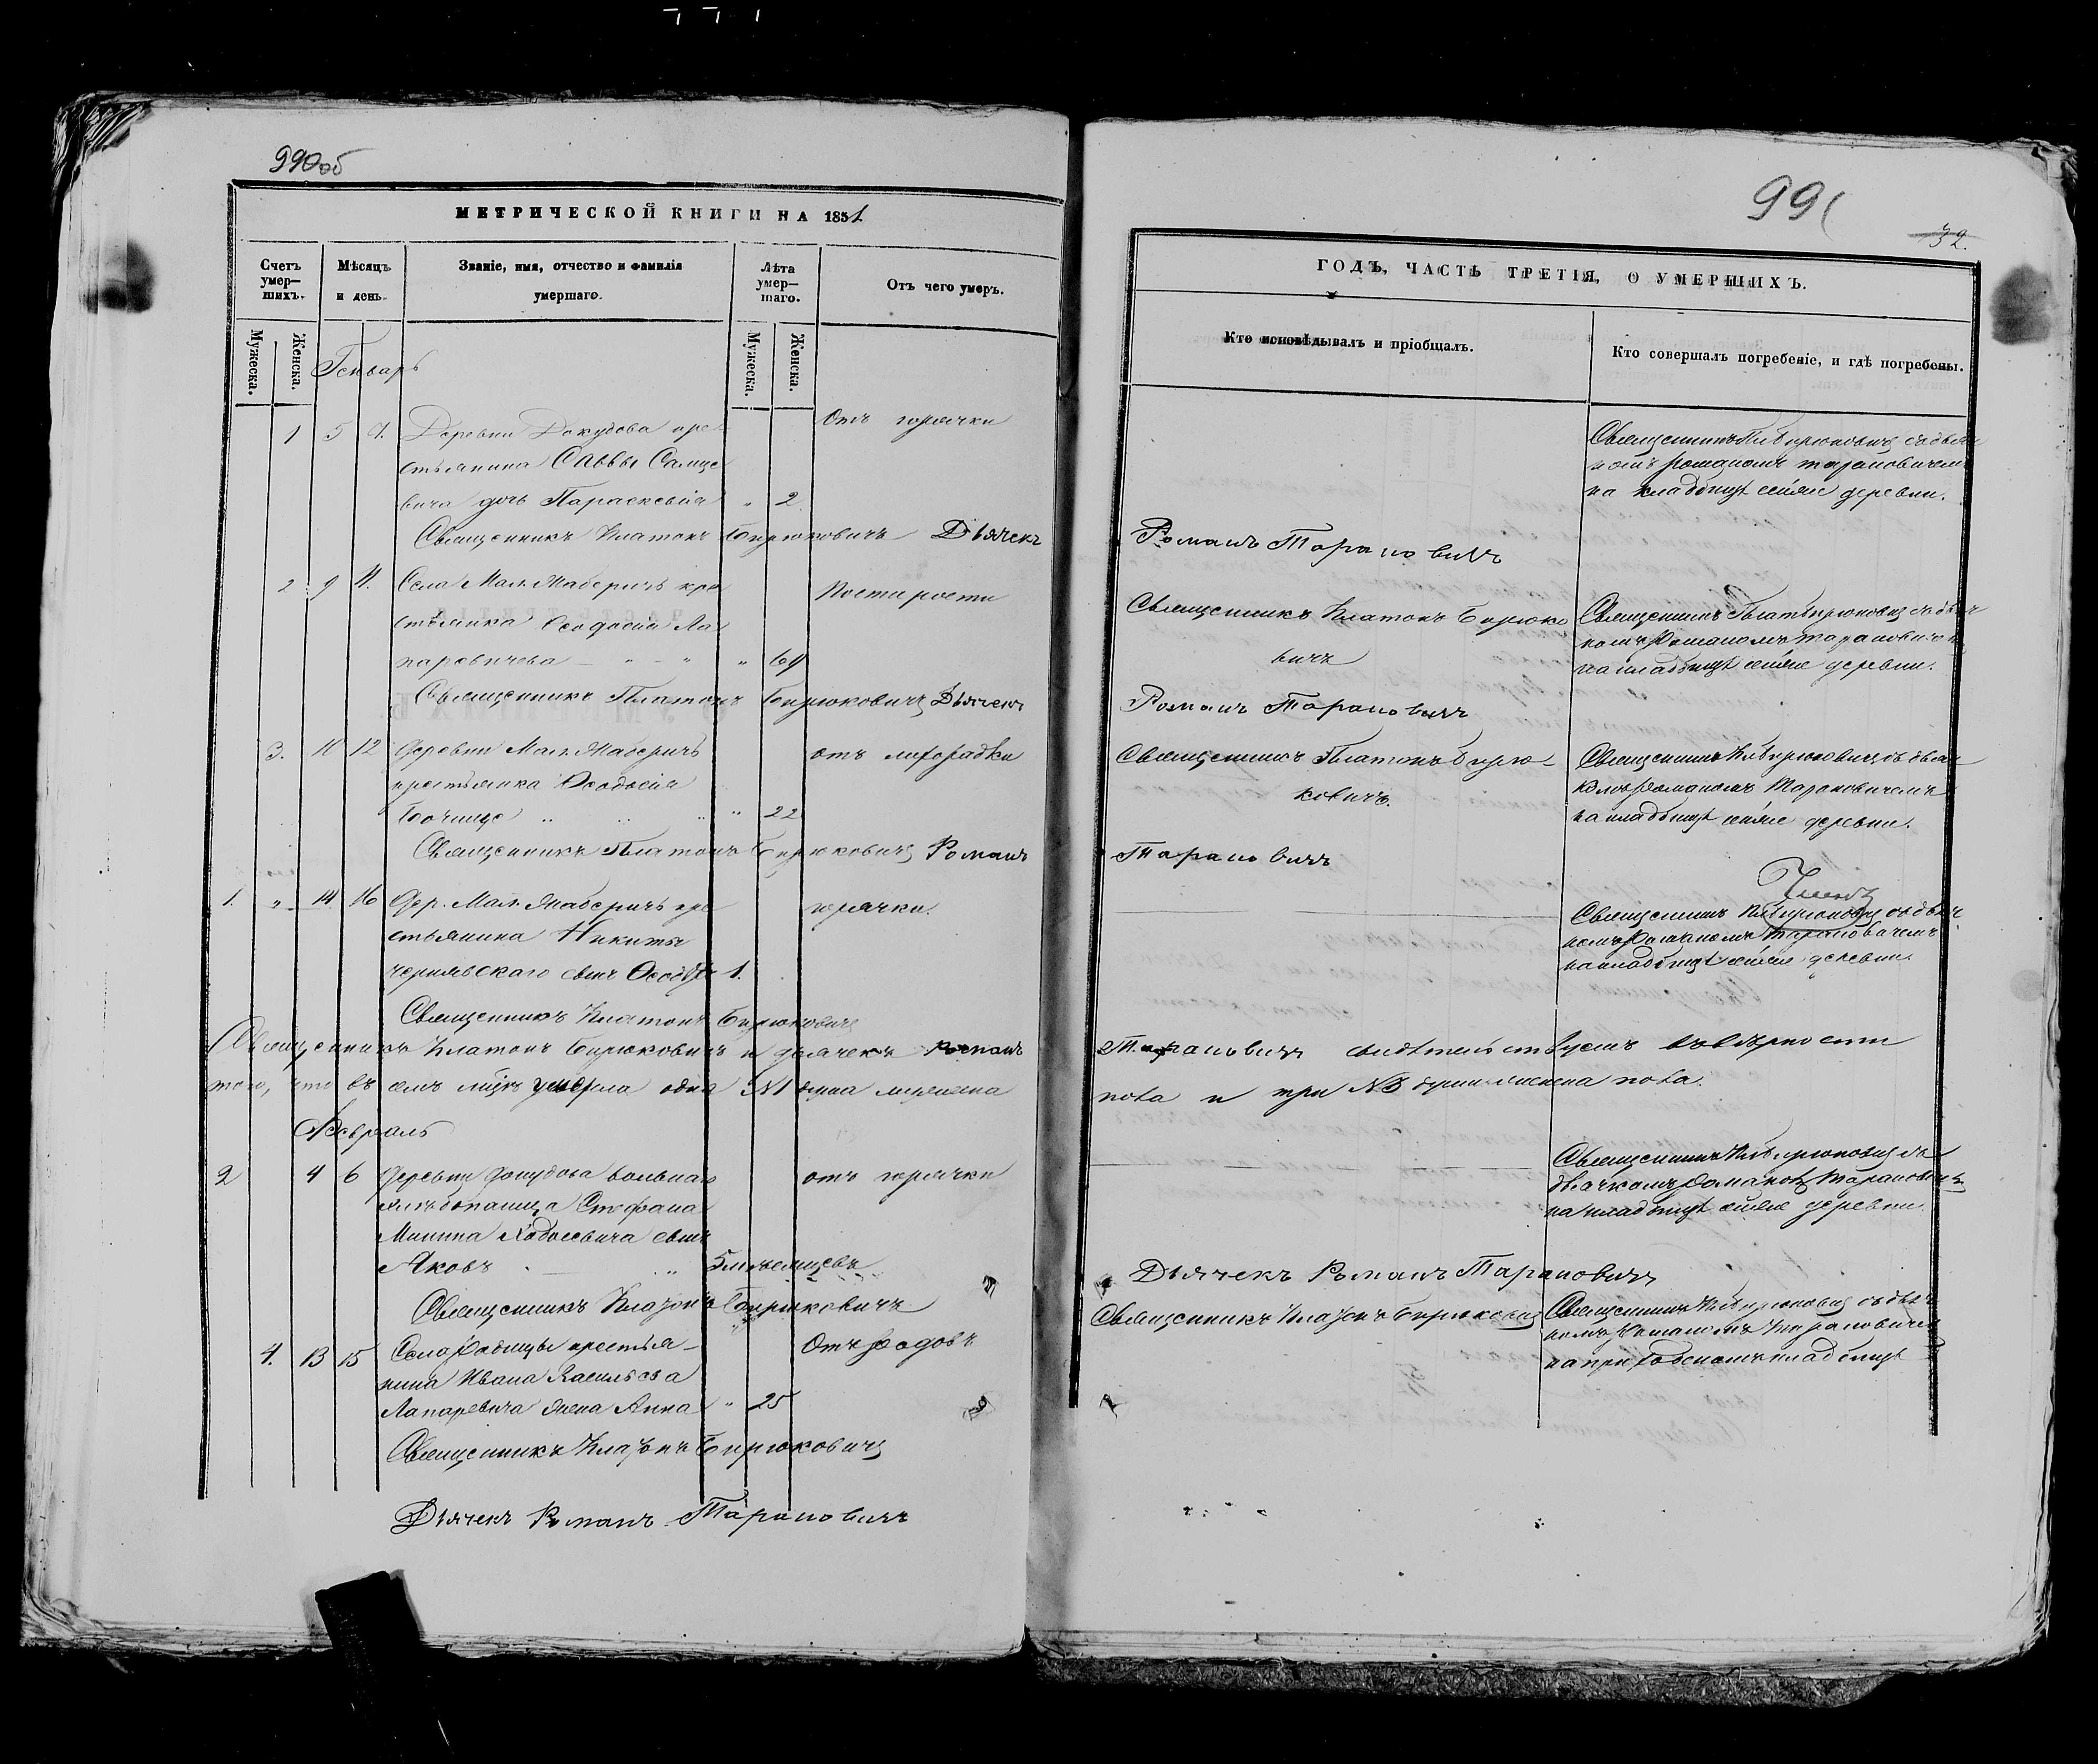 990об
МЕТРИЧЕСКОЙ КНИГИ НА 1851.
Счетъ умер-шихъ.
Мѣсяцъ и день.
Званіе, имя, отчество и фамилія умершаго.
Лѣта умер-шаго.
Отъ чего умеръ.
Мужеска. Женска.
Мужеска. Женска.
Генварь
1 5 Деревни Докудова кре
Отъ горячки
стьянина Саввы
вича дочь Параскевія " 2
Священникъ Платонъ Бирюковичъ Дьячекъ
2 9 11. Села Мал. Жаберичъ кре
стьянка Ѳеодосія Ла
паревичева " 69
Священникъ Платонъ Бирюковичъ Дьячекъ
3. 12 Деревни Мал. Жаберичъ
отъ лихорадки
крестьянка Ѳеодосія
" 22
Священникъ Платонъ Бирюковичъ Романъ
1. " 14 16 Дер. Мал. Жаберичъ кре
горячки.
стьянина Никиты
чернявскаго сынъ 1.
Священникъ Платонъ Бирюковичъ
Священникъ Платонъ Бирюковичъ и дьячекъ Романъ
того, что въ семъ мѣсяцѣ умерла одна №1 душа
Февраль
2 4 6 Деревни Докудова вольнаго
отъ горячки
хлѣбопашца Стефана
сынъ
Яковъ " 5ти мѣсяцевъ
Священникъ Платонъ Бирюковичъ
4. 13 15 Села крестья-
Отъ родовъ
нина Ивана Васильева
Лапаревича жена Анна " 25
Священникъ Платонъ Бирюковичъ
Дьячекъ Романъ Тарановичъ
991
32.
ГОДЪ, ЧАСТЬ ТРЕТІЯ, О УМЕРШИХЪ.
Кто исповѣдывалъ и пріобщалъ.
Кто совершалъ погребеніе, и гдѣ погребены.
Священникъ Пл Бирюковичъ съ дьяч
комъ Романомъ Тарановичемъ
на кладбищѣ сейже деревни.
Романъ Тарановичъ
Священникъ Платонъ Бирюко
вичъ
Священникъ Плат Бирюковичъ съ дьяч
комъ Романомъ Тарановичемъ
на кладбищѣ сейже деревни.
Романъ Тарановичъ
Священникъ Платонъ Бирю-
ковичъ.
Священникъ Пл Бирюковичъ съ дьяч
комъ Романомъ Тарановичемъ
на кладбищѣ сейже деревни.
Тарановичъ
Священникъ Пл Бирюковичъ съ дьяч
комъ Романомъ Тарановичемъ
на кладбищѣ сейже деревни.
Тарановичъ свидѣтельствуемъ въ вѣрности
пола и три №3 души женска пола.
Священникъ Пл Бирюковичъ съ
дьячкомъ Романомъ Тарановичемъ
на кладбищѣ сейже деревни.
Дьячекъ Романъ Тарановичъ
Священникъ Платонъ Бирюковичъ
Священникъ Пл Бирюковичъ съ дьяч
комъ Романомъ Тарановичемъ
на кладбищѣ